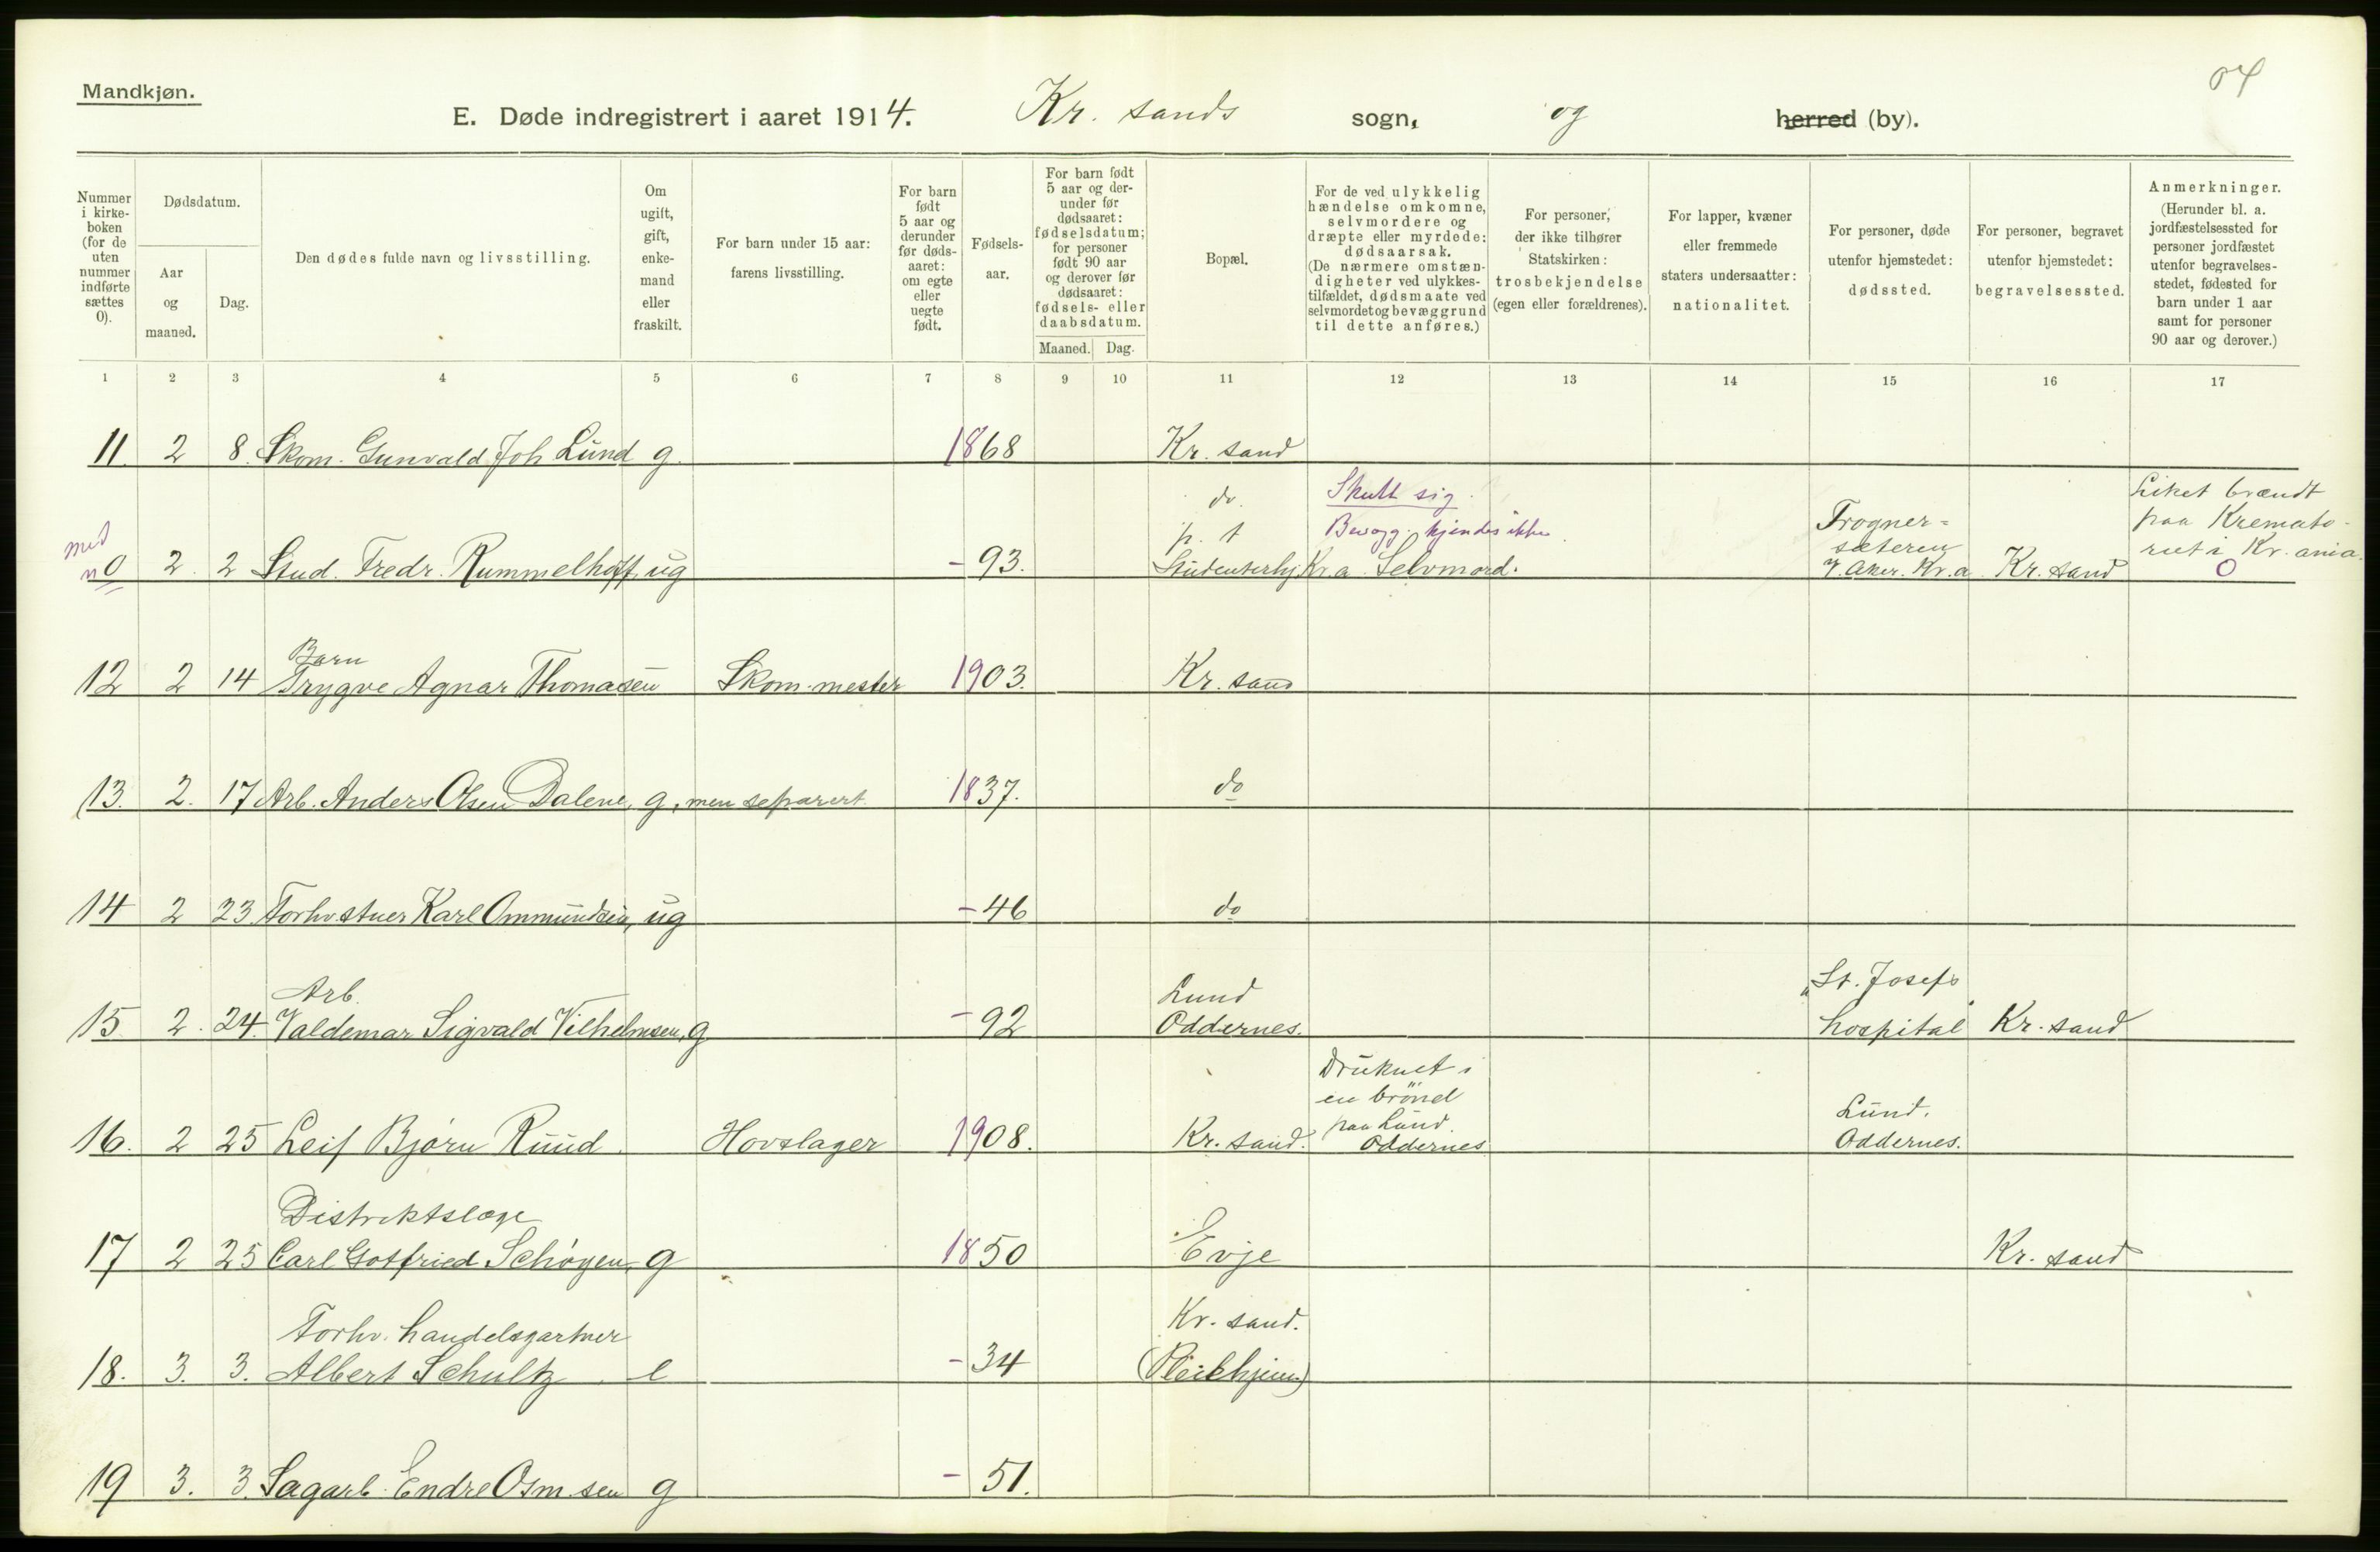 Mandkjøn.
04
E. Døde indregistrert i aaret 1914. Kr. sands sogn, og herred (by).
Nummer i kirke-boken (for de uten nummer indførte sættes 0).
Dødsdatum.
Aar og maaned.
Dag.
Den dødes fulde navn og livsstilling.
Om ugift, gift, enke-mand eller fraskilt.
For barn under 15 aar: farens livsstilling.
For barn født 5 aar og derunder før døds-aaret: om egte eller uegte født.
Fødsels-aar.
For barn født 5 aar og der-under før dødsaaret: fødselsdatum; for personer født 90 aar og derover før dødsaaret: fødsels- eller daabsdatum.
Maaned. Dag.
Bopæl.
For de ved ulykkelig hændelse omkomne, selvmordere og dræpte eller myrdede: dødsaarsak. (De nærmere omstæn-digheter ved ulykkes-tilfældet, dødsmaate ved selvmordet og bevæggrund til dette anføres.)
For personer, der ikke tilhører Statskirken: trosbekjendelse (egen eller forældrenes).
For lapper, kvæner eller fremmede staters undersaatter: nationalitet.
For personer, døde utenfor hjemstedet: dødssted.
For personer, begravet utenfor hjemstedet: begravelsessted.
Anmerkninger. (Herunder bl. a. jordfæstelsessted for personer jordfæstet utenfor begravelses-stedet, fødested for barn under 1 aar samt for personer 90 aar og derover.)
1 2 3 4 5 6 7 8 9 10 11 12 13 14 15 16 17
11. 2 8. Skom. Gunvald Joh Lund g. 1868 Kr. sand
do. Skutt sig. Liket brændt
p. t Bevægg. kjendes ikke. Frogner= paa Kremato-
med sæteren riet i Kr. ania.
0 2. 2 Stud. Fredr. Rummelhoff, ug - 93. Studenterhj. Kr.a Selvmord. V. Aker. Kr.a Kr. sand 0
Barn
12 2 14 Trygve Agnar Thomasen Skom.mester 1903. Kr. sand
13. 2. 17 Arb. Anders Olsen Dalene, g, men separert. 1837. do
14 2 23. Forhv. stuer Karl Ommundsen, ug - 46 do
Arb. Lund "St. Josefs
15 2. 24. Valdemar Sigvald Vilhelmsen, g - 92 Oddernes. hospital" Kr. sand
Druknet i
en brönd
paa Lund. Lund.
16. 2 25 Leif Bjørn Ruud. Hovslager 1908. Kr. sand. Oddernes Oddernes.
Distriktslæge
17 2 25 Carl Gotfried Schøyen, g 1850 Evje Kr. sand
Forhv. handelsgartner Kr. sand.
18. 3. 3. Albert Schultz e - 34 (Pleiehjem)
19 3. 3. Sagarb. Endre Osm.sen g - 51.